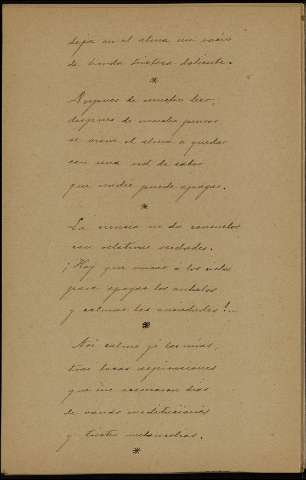 deja en el alma un vacio
de honda tristeza doliente.
*
Despues de mucho leer,
despues de mucho pensar
se viene el alma a quedar
con una sed de saber
que nadie puede apagar.
*
La ciencia no da consuelos
con relativas verdades.
¡Hay que mirar a los cielos
para apagar los anhelos
y calmar las ansiedades!..
*
Asi calmé yo las mias,
tras locas aspiraciones
que me costaron dias
de vanas meditaciones
y tristes melancolias.
*